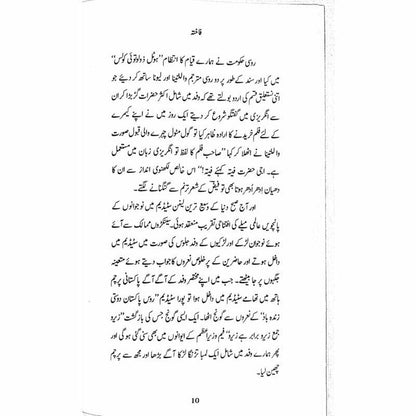 فاختہ
روسی حکومت نے ہمارے قیام کا انتظام "ہوٹل زولوتوئی کولس"
میں کیا اور سند کے طور پر دو روسی مترجم والنتینا اور لیونا ساتھ کر دیئے جو
اتنی نستعلیق قسم کی اردو بولتے تھے کہ وفد میں شامل اکثر حضرات گڑبڑا کر ان
سے انگریزی میں گفتگو شروع کر دیتے۔ ایک روز میں نے اپنے کیمرے
کے لئے فلم خریدنے کا ارادہ ظاہر کیا تو گول مٹول چہرے والی قبول صورت
والنتینا نے اٹھلا کر کہا "صاحب فلم کا لفظ تو انگریزی زبان میں مستعمل
ہے۔ اجی حضرت فیتہ کہئے فیتہ!" اس خالص لکھنوی انداز سے ان کا
دھیان اِدھر اُدھر ہوتا بھی تو فیض کے شعر ترنم سے گنگنانے لگتے۔
اور آج صبح دنیا کے وسیع ترین لینن سٹیڈیم میں نوجوانوں کے
پانچویں عالمی میلے کی افتتاحی تقریب منعقد ہوئی۔ سینکڑوں ممالک سے آئے
ہوئے نوجوان لڑکے اور لڑکیوں کے وفد جلوس کی صورت میں سٹیڈیم میں
داخل ہوتے اور حاضرین کے پرخلوص نعروں کا جواب دیتے ہوئے متعینہ
جگہوں پر جا بیٹھتے۔ جب میں اپنے مختصر وفد کے آگے آگے پاکستانی پرچم
ہاتھ میں تھامے سٹیڈیم میں داخل ہوا تو پورا سٹیڈیم "روس پاکستان دوستی
زندہ باد" کے نعروں سے گونج اٹھا۔ ایک ایسی گونج جس کی بازگشت "زیرو
جمع زیرو برابر ہے زیرو" فیم وزیراعظم کے ایوانوں میں بھی سنی گئی ہو گی اور
پھر ہمارے وفد میں شامل ایک لمبا تڑنگا لڑکا آگے بڑھا اور مجھ سے پرچم
چھین لیا۔
10